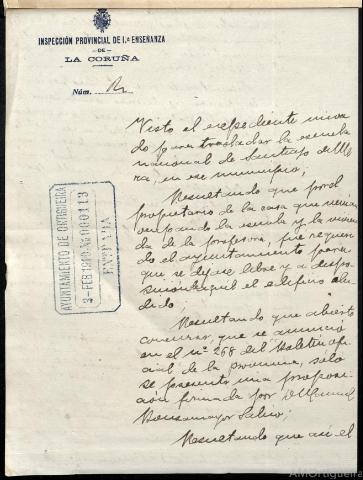 INSPECCIÓN PROVINCIAL DE 1.ª ENSEÑANZA
DE
LA CORUÑA
Núm.
Visto el expediente inicia
do para trasladar la escuela
nacional de Santiago de Me
ra, en ese municipio;
Resultando que por el
propietario de la casa que venía
ocupando la escuela y la vivien
da de la profesora, fue requeri
do el ayuntamiento para
que se dejase libre y a dispo
sición de aquél el edificio alu
dido.
Resultando que abierto
concurso, que se anunció
en el nº 268 del Boletín ofi
cial de la provincia, sólo
se presentó una proposi
ción firmada por Manuel
Resultando que así el
AYUNTAMIENTO DE ORTIGUEIRA
3-FEB 1940 000113
ENTRADA
AMOrtigueira